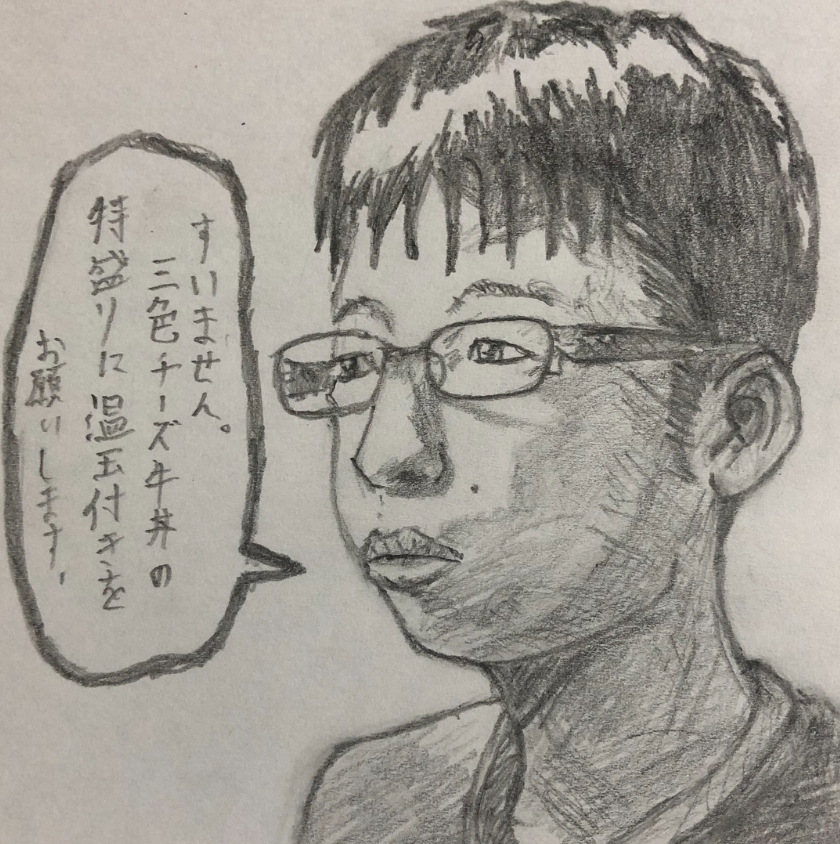 すいません。
三色チーズ牛丼の
特盛りに温玉付きを
お願いします。